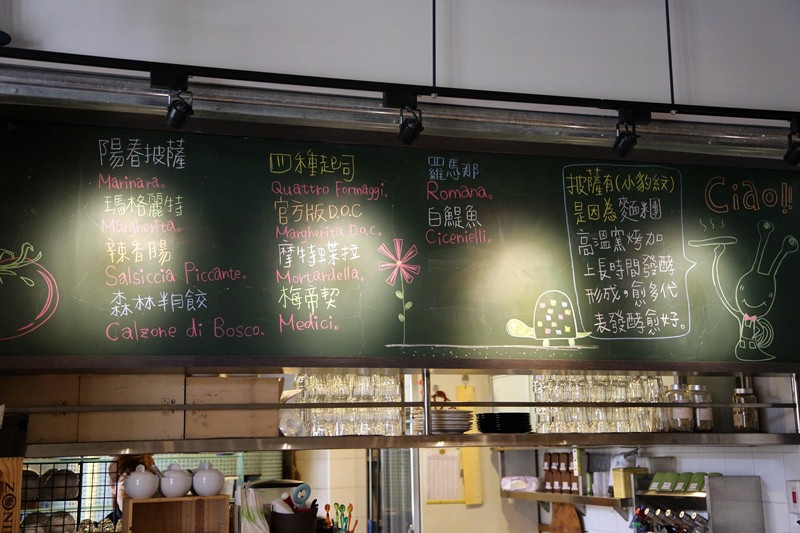 陽春披薩
Marinara。
瑪格麗特
Margherita。
辣香腸
Salsiccia Piccante。
森林半月餃
Calzone di Bosco。
四種起司
Quattro Formaggi.
官方版D.O.C
Margherita D.o.c.
摩特蝶拉
Mortardella。
梅帝契
Medici。
羅馬那
Romana。
白鯷魚
Cicenielli。
披薩有(小豹紋)
是因為麵糰
高溫窯烤加
上長時間發酵
形成，愈多代
表發酵愈好。
Ciao!!